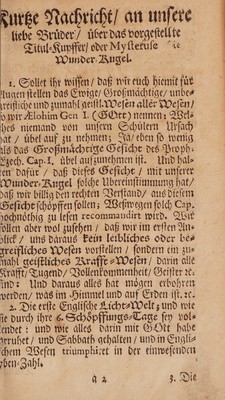 Kurtze Nachricht/ an unsere
liebe Brüder/ über das vorgestellte
Titul-Kupffer/ oder Mysteriuse
Wunder-Kugel.
1. Sollet ihr wissen/ daß wir euch hiemit für
Augen stellen das Ewige/ Großmächtige/ unbe-
greifliche und zumahl geistl. Wesen aller Wesen/
so wir Ælohim Gen I. (GOtt) nennen: Wel-
ches niemand von unsern Schülern Ursach
hat/ übel auf zu nehmen: Ja/ eben so wenig
als das Großmächtige Gesicht des Proph.
Ezech. Cap. I. übel aufzunehmen ist. Und hal-
ten dafür/ daß dieses Gesicht/ mit unserer
Wunder-Kugel solche Übereinstimmung hat/
daß wir billig den rechten Verstand/ aus diesem
Gesicht schöpffen sollen; Weßwegen solch Cap.
hochnöthig zu lesen recommandirt wird. Wir
sollen aber wol zusehen/ daß wir im ersten An-
blick/ uns daraus kein leibliches oder be-
greifliches Wesen vorstellen/ sondern ein zu-
mahl geistliches Kraffts-Wesen/ darin alle
Krafft/ Tugend/ Vollkommenheit/ Geister ꝛc.
sind: Und daraus alles hat mögen erbohren
werden/ was im Himmel und auf Erden ist. ꝛc.
2. Die erste Englische Licht-Welt; und wie
sie durch ihre 6. Schöpffungs-Tage sey vol-
lendet: und wie alles darin mit GOtt habe
geruhet/ und Sabbath gehalten/ und in Engli-
schem Wesen triumphiret in der einwesenden
sieben-Zahl.
a 2 3. Die